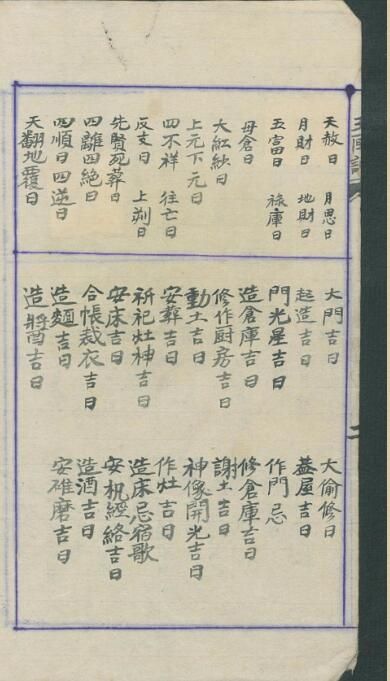 天赦日　月恩日
月財日　地財日
五富日　祿庫日
母倉日
大紅紗日
上元下元日
四不祥　往亡日
反支日　上朔日
先賢死葬日
四離四絕日
四順日四逆日
天翻地覆日
大門吉日　大偷修日
起造吉日　蓋屋吉日
門光星吉日　作門忌
造倉庫吉日　修倉庫吉日
修作厨房吉日　謝土吉日
動土吉日　神像開光吉日
安葬吉日　作灶吉日
祈祀灶神吉日　造床忌宿歌
安床吉日　安机經絡吉日
合帳裁衣吉日　造酒吉日
造麵吉日　安碓磨吉日
造醬吉日